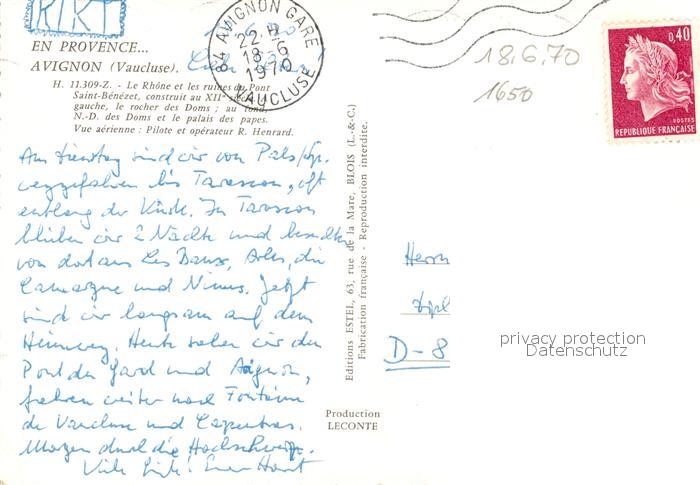 EN PROVENCE...
AVIGNON (Vaucluse).
H. 11.309-Z. - Le Rhône et les ruines du Pont
Saint-Bénézet, construit au XIIe siècle; à
gauche, le rocher des Doms ; au fond,
N.-D. des Doms et le palais des papes.
Vue aérienne : Pilote et opérateur R. Henrard.
84 AVIGNON GARE
22 H
18-6
1970
VAUCLUSE
Am Dienstag sind wir von Pals/Sp.
weggefahren bis Tarascon, oft
entlang der Küste. In Tarascon
blieben wir 2 Nächte und besuchten
von dort aus Les Baux, Arles, die
Camargue und Nimes. Jetzt
sind wir langsam auf dem
Heimweg. Heute sahen wir den
Pont du Gard und Avignon,
fahren weiter nach Fontaine
de Vaucluse und Carpentras.
Morgen durch die Hochschweiz.
Viele Grüße! Euer Horst
Editions ESTEL, 63, rue de la Mare, BLOIS (L.-&-C.)
Fabrication française - Reproduction interdite.
Production
LECONTE
18.6.70
1650
0,40
POSTES
REPUBLIQUE FRANÇAISE
Herrn
Dipl
D-8
privacy protection
Datenschutz